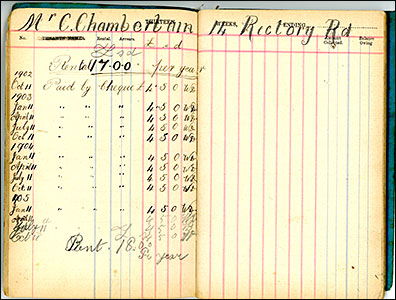 Mr C. Chamberlain 14 Rectory Rd
No. TENANTS' NAMES. Rental Arrears WEEKS ENDING Amount Collected Balance Owing
£ s d
Rental 17.0.0 per year
1902
Oct 11 Paid by Cheque 4 5 0
1903
Jan 11 " " " 4 5 0
April 11 " " " 4 5 0
July 11 " " " 4 5 0
Oct 11 " " " 4 5 0
1904
Jan 11 " " " 4 5 0
April 11 " " " 4 5 0
July 11 " " " 4 5 0
Oct 11 " " " 4 5 0
1905
Jan 11 " " " 4 5 0
April 11 4 5 0
July 11 4 5 0
Oct 11 4 5 0
Rent 18
year